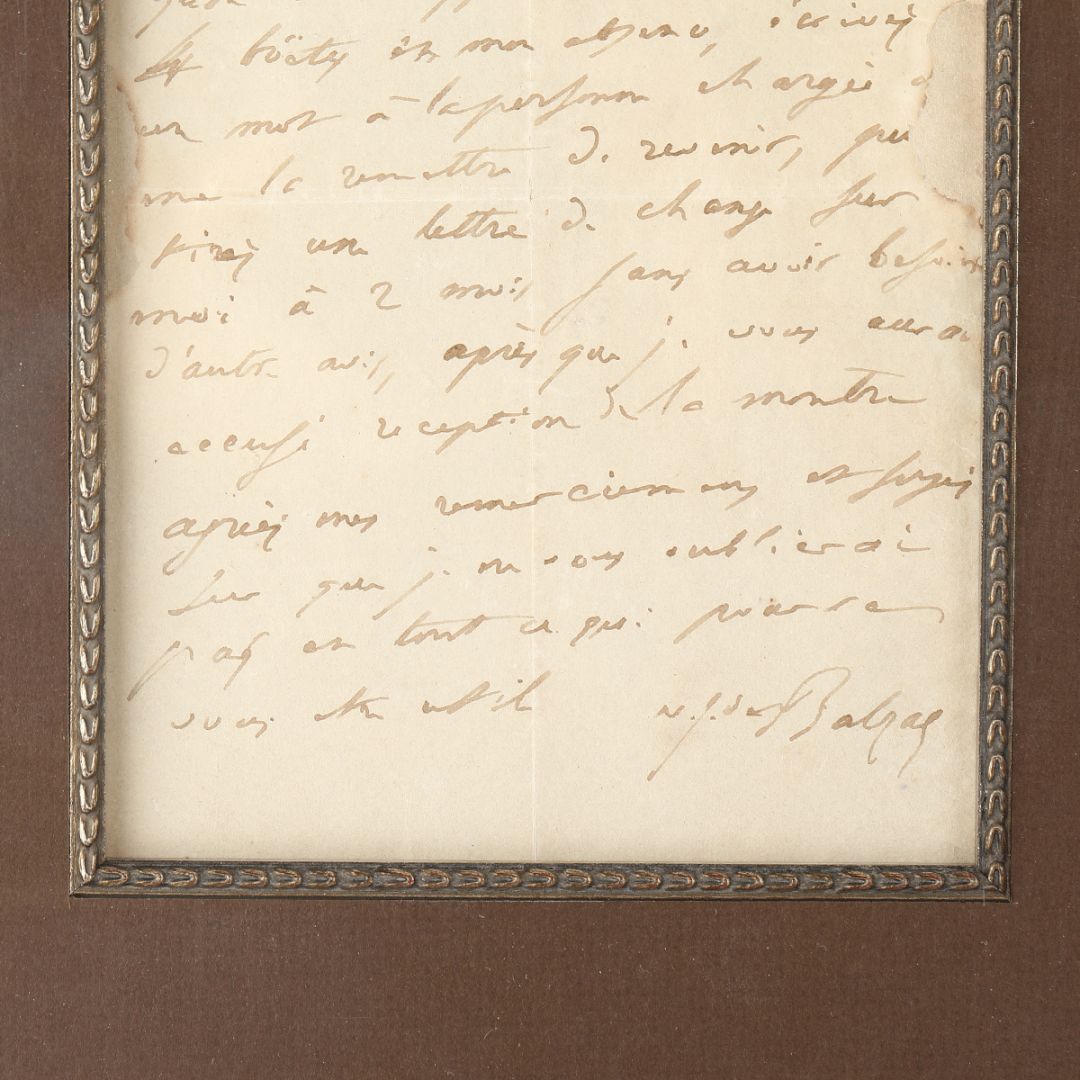 boëty en mon absence, écrivez
un mot à la personne chargée
me la remettre de revenir, puis
tirez une lettre de change sur
moi à 2 mois sans avoir besoin
d'autre avis, après que je vous aurai
accusé réception de la montre
agréez mes remerciemens et soyez
sur que je ne vous oublierai
pas en tout ce qui pourra
vous être utile
de Balzac